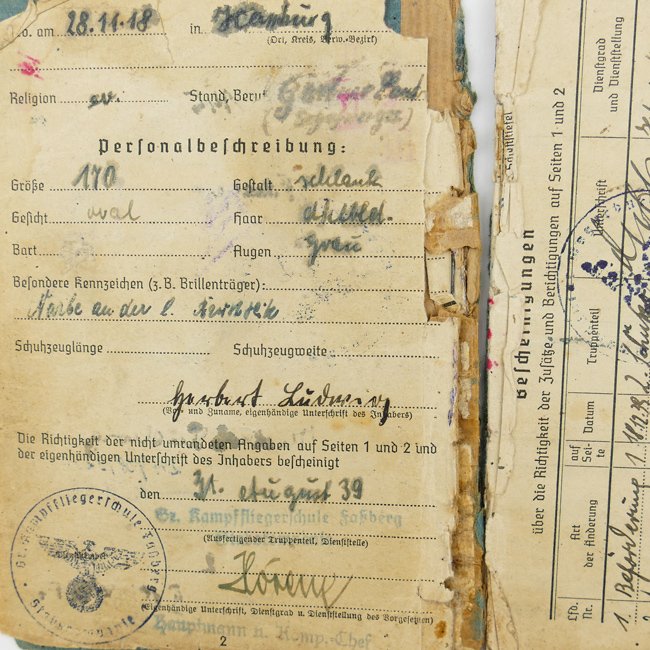 am 28.11.18 in Hamburg
(Ort, Kreis, Verw.-Bezirk)
Religion ev. Stand, Beruf
Personalbeschreibung:
Größe 170 Gestalt schlank
Gesicht oval Haar dklbld.
Bart Augen grau
Besondere Kennzeichen (z.B. Brillenträger):
Narbe an der l.
Schuhzeuglänge Schuhzeugweite
Herbert Ludwig
(Vor- und Zuname, eigenhändige Unterschrift des Inhabers)
Die Richtigkeit der nicht umrandeten Angaben auf Seiten 1 und 2 und
der eigenhändigen Unterschrift des Inhabers bescheinigt
den 31. August 39
Gr. Kampffliegerschule Faßberg
(Ausfertigender Truppenteil, Dienststelle)
(Eigenhändige Unterschrift, Dienstgrad u. Dienststellung des Vorgesetzten)
Hauptmann u. Komp.-Chef
2
Gr. Kampffliegerschule Faßberg
Bescheinigungen
über die Richtigkeit der Zusätze und Berichtigungen auf Seiten 1 und 2
Lfd. Nr.
Art der Änderung
auf Seite
Datum
Truppenteil
Unterschrift
Dienstgrad und Dienststellung
1 Beförderung 1